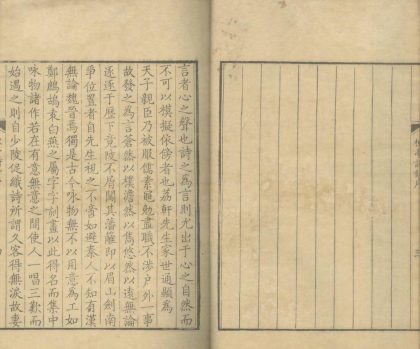 言者心之聲也詩之為言則尤出于心之自然而
不可以模擬依傍者也荔軒先生家世通顯為
天子親臣乃被服儒素黽勉盡職不涉戶外一事
故發之為言蒼然以樸澹然以雋悠然以遠無論
逐逐于歷下竟陵不屑闖其藩籬即以眉山劍南
爭位置者自先生視之不啻如避秦人不知有漢
無論魏晉焉獨是古今咏物無不以用意為工如
鄭鷓鴣袁白燕之屬字字刻畫以此得名而集中
咏物諸作若在有意無意之間使人一唱三歎而
始遇之則自少陵促織詩所謂久客得無淚故妻